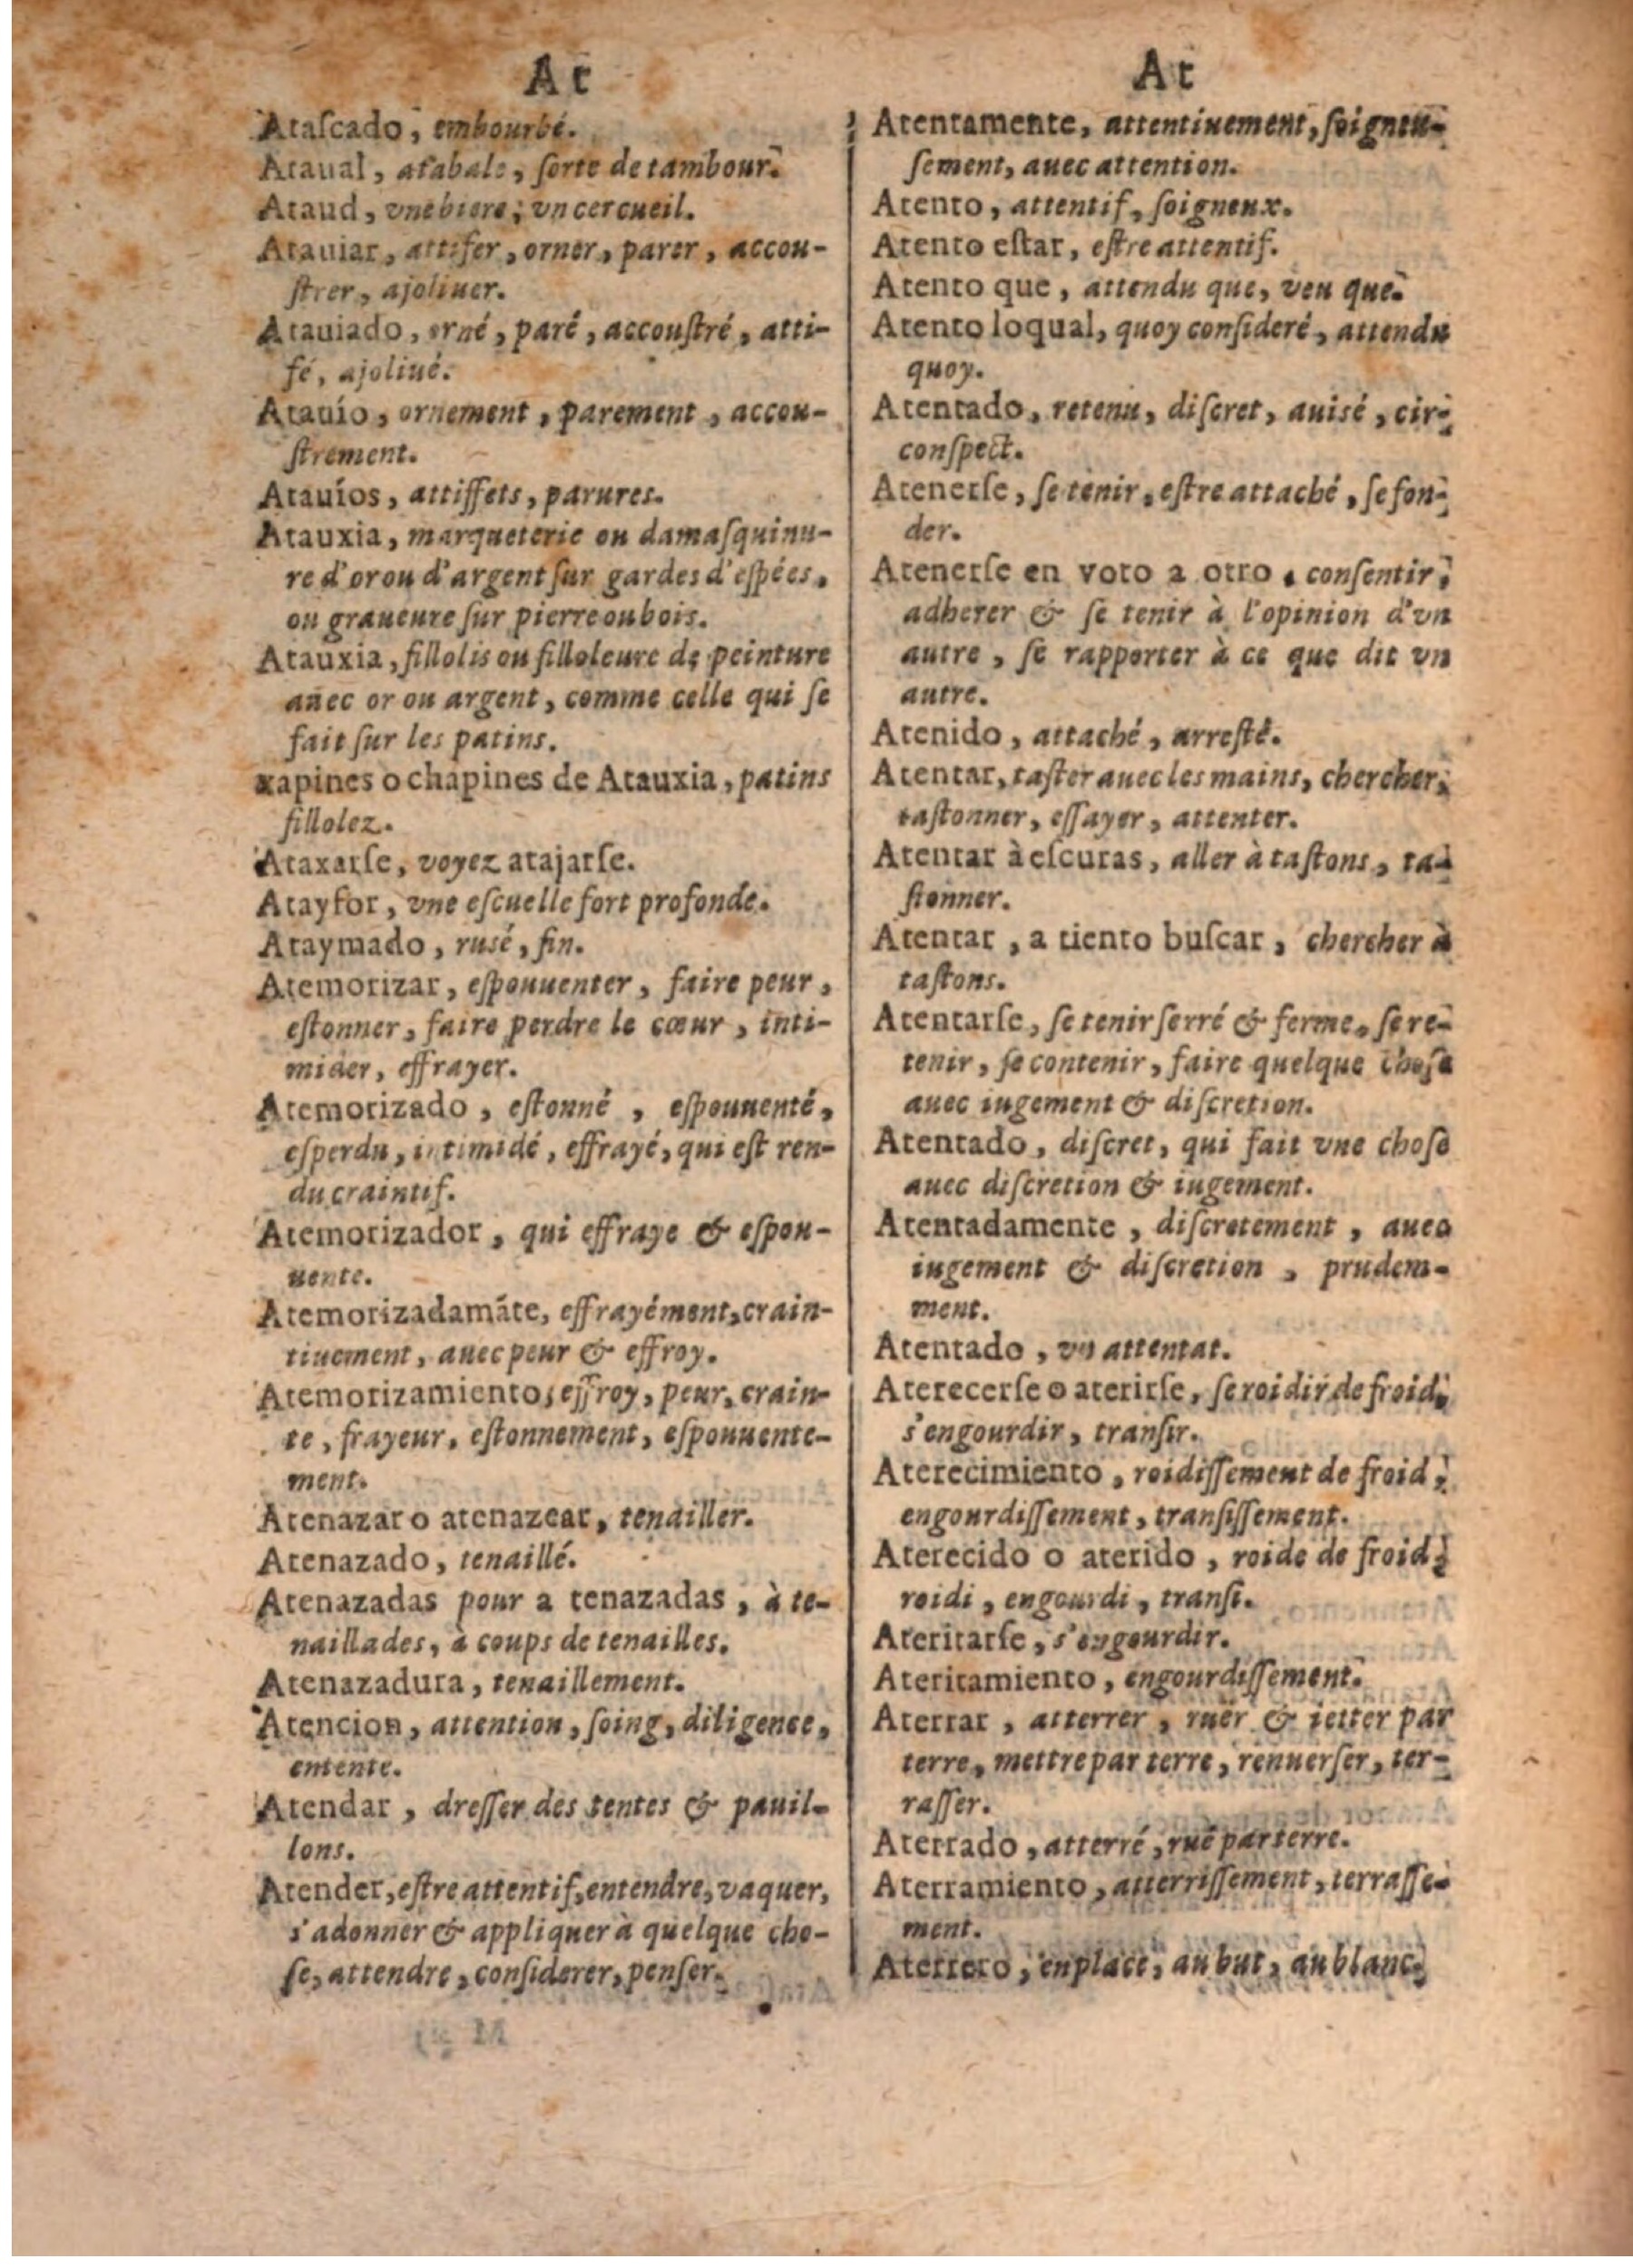 At
Ataſcado, embourbé.
Ataual, atabale, ſorte de tambour.
Ataud, vne biere, vn cercueil.
Atauiar, attifer, orner, parer, accou-
ſtrer, ajoliuer.
Atauiado, orné, paré, accouſtré, atti-
fé, ajoliué.
Atauío, ornement, parement, accou-
ſtrement.
Atauíos, attiffets, parures.
Atauxia, marqueterie ou damaſquinu-
re d'or ou d'argent ſur gardes d'eſpées,
ou graueure ſur pierre ou bois.
Atauxia, fillolis ou filloleure de peinture
auec or ou argent, comme celle qui ſe
fait ſur les patins.
xapines o chapines de Atauxia, patins
fillolez.
Ataxarſe, voyez atajarſe.
Atayfor, vne eſcuelle fort profonde.
Ataymado, rusé, fin.
Atemorizar, eſpouuenter, faire peur,
eſtonner, faire perdre le cœur, inti-
mider, effrayer.
Atemorizado, eſtonné, eſpouuenté,
eſperdu, intimidé, effrayé, qui eſt ren-
du craintif.
Atemorizador, qui effraye & eſpou-
uente.
Atemorizadamãte, effrayément, crain-
tiuement, auec peur & effroy.
Atemorizamiento, effroy, peur, crain-
te, frayeur, eſtonnement, eſpouuente-
ment.
Atenazar o atenazear, tenailler.
Atenazado, tenaillé.
Atenazadas pour a tenazadas, à te-
naillades, à coups de tenailles.
Atenazadura, tenaillement.
Atencion, attention, ſoing, diligence,
entente.
Atendar, dreſſer des tentes & pauil-
lons.
Atender, eſtre attentif, entendre, vaquer,
s'adonner & appliquer à quelque cho-
ſe, attendre, conſiderer, penſer.
At
Atentamente, attentiuement, ſoigneu-
ſement, auec attention.
Atento, attentif, ſoigneux.
Atento eſtar, eſtre attentif.
Atento que, attendu que, veu que.
Atento loqual, quoy conſideré, attendu
quoy.
Atentado, retenu, diſcret, auisé, cir-
conſpect.
Atenerſe, ſe tenir, eſtre attaché, ſe fon-
der.
Atenerſe en voto a otro, conſentir,
adherer & ſe tenir à l'opinion d'vn
autre, ſe rapporter à ce que dit vn
autre.
Atenido, attaché, arreſté.
Atentar, taſter auec les mains, chercher,
taſtonner, eſſayer, attenter.
Atentar à eſcuras, aller à taſtons, ta-
ſtonner.
Atentar, a tiento buſcar, chercher à
taſtons.
Atentarſe, ſe tenir ſerré & ferme, ſe re-
tenir, ſe contenir, faire quelque choſe
auec iugement & diſcretion.
Atentado, diſcret, qui fait vne choſe
auec diſcretion & iugement.
Atentadamente, diſcretement, auec
iugement & diſcretion, prudem-
ment.
Atentado, vn attentat.
Aterecerſe o aterirſe, ſe roidir de froid,
s'engourdir, tranſir.
Aterecimiento, roidiſſement de froid,
engourdiſſement, tranſiſſement.
Aterecido o aterido, roide de froid,
roidi, engourdi, tranſi.
Ateritarſe, s'engourdir.
Ateritamiento, engourdiſſement.
Aterrar, atterrer, ruër & ietter par
terre, mettre par terre, renuerſer, ter-
raſſer.
Aterrado, atterré, rué par terre.
Aterramiento, atterriſſement, terraſſe-
ment.
Aterrero, en place, au but, au blanc.